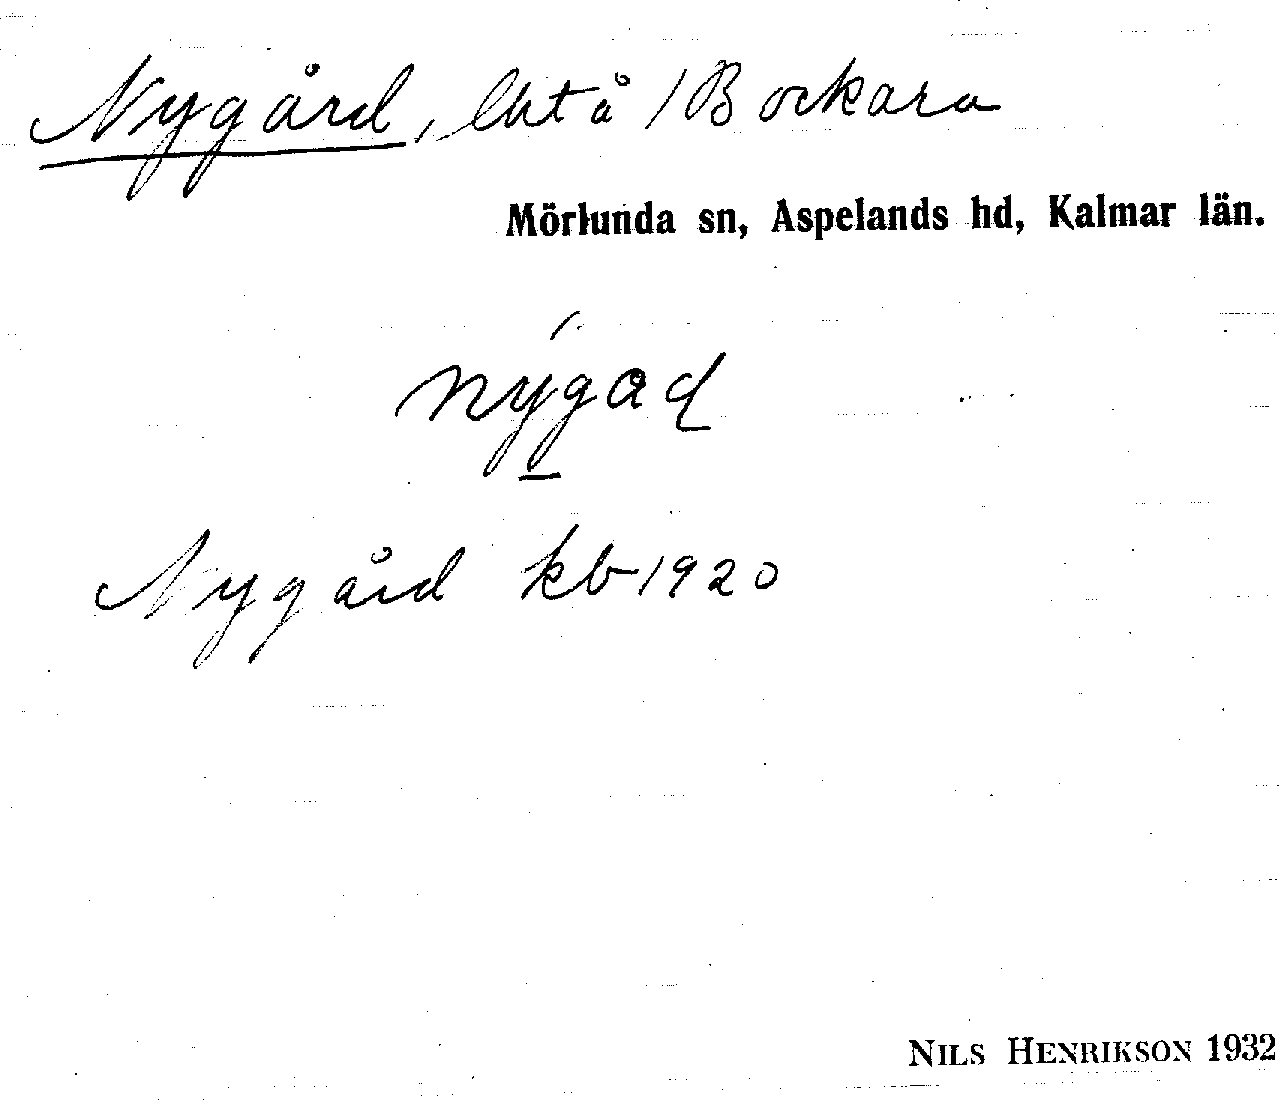 Nygård, lht å /Bockara
Mörlunda sn, Aspelands hd, Kalmar län.
nýgad
Nygård kb 1920
NILS HENRIKSON 1932